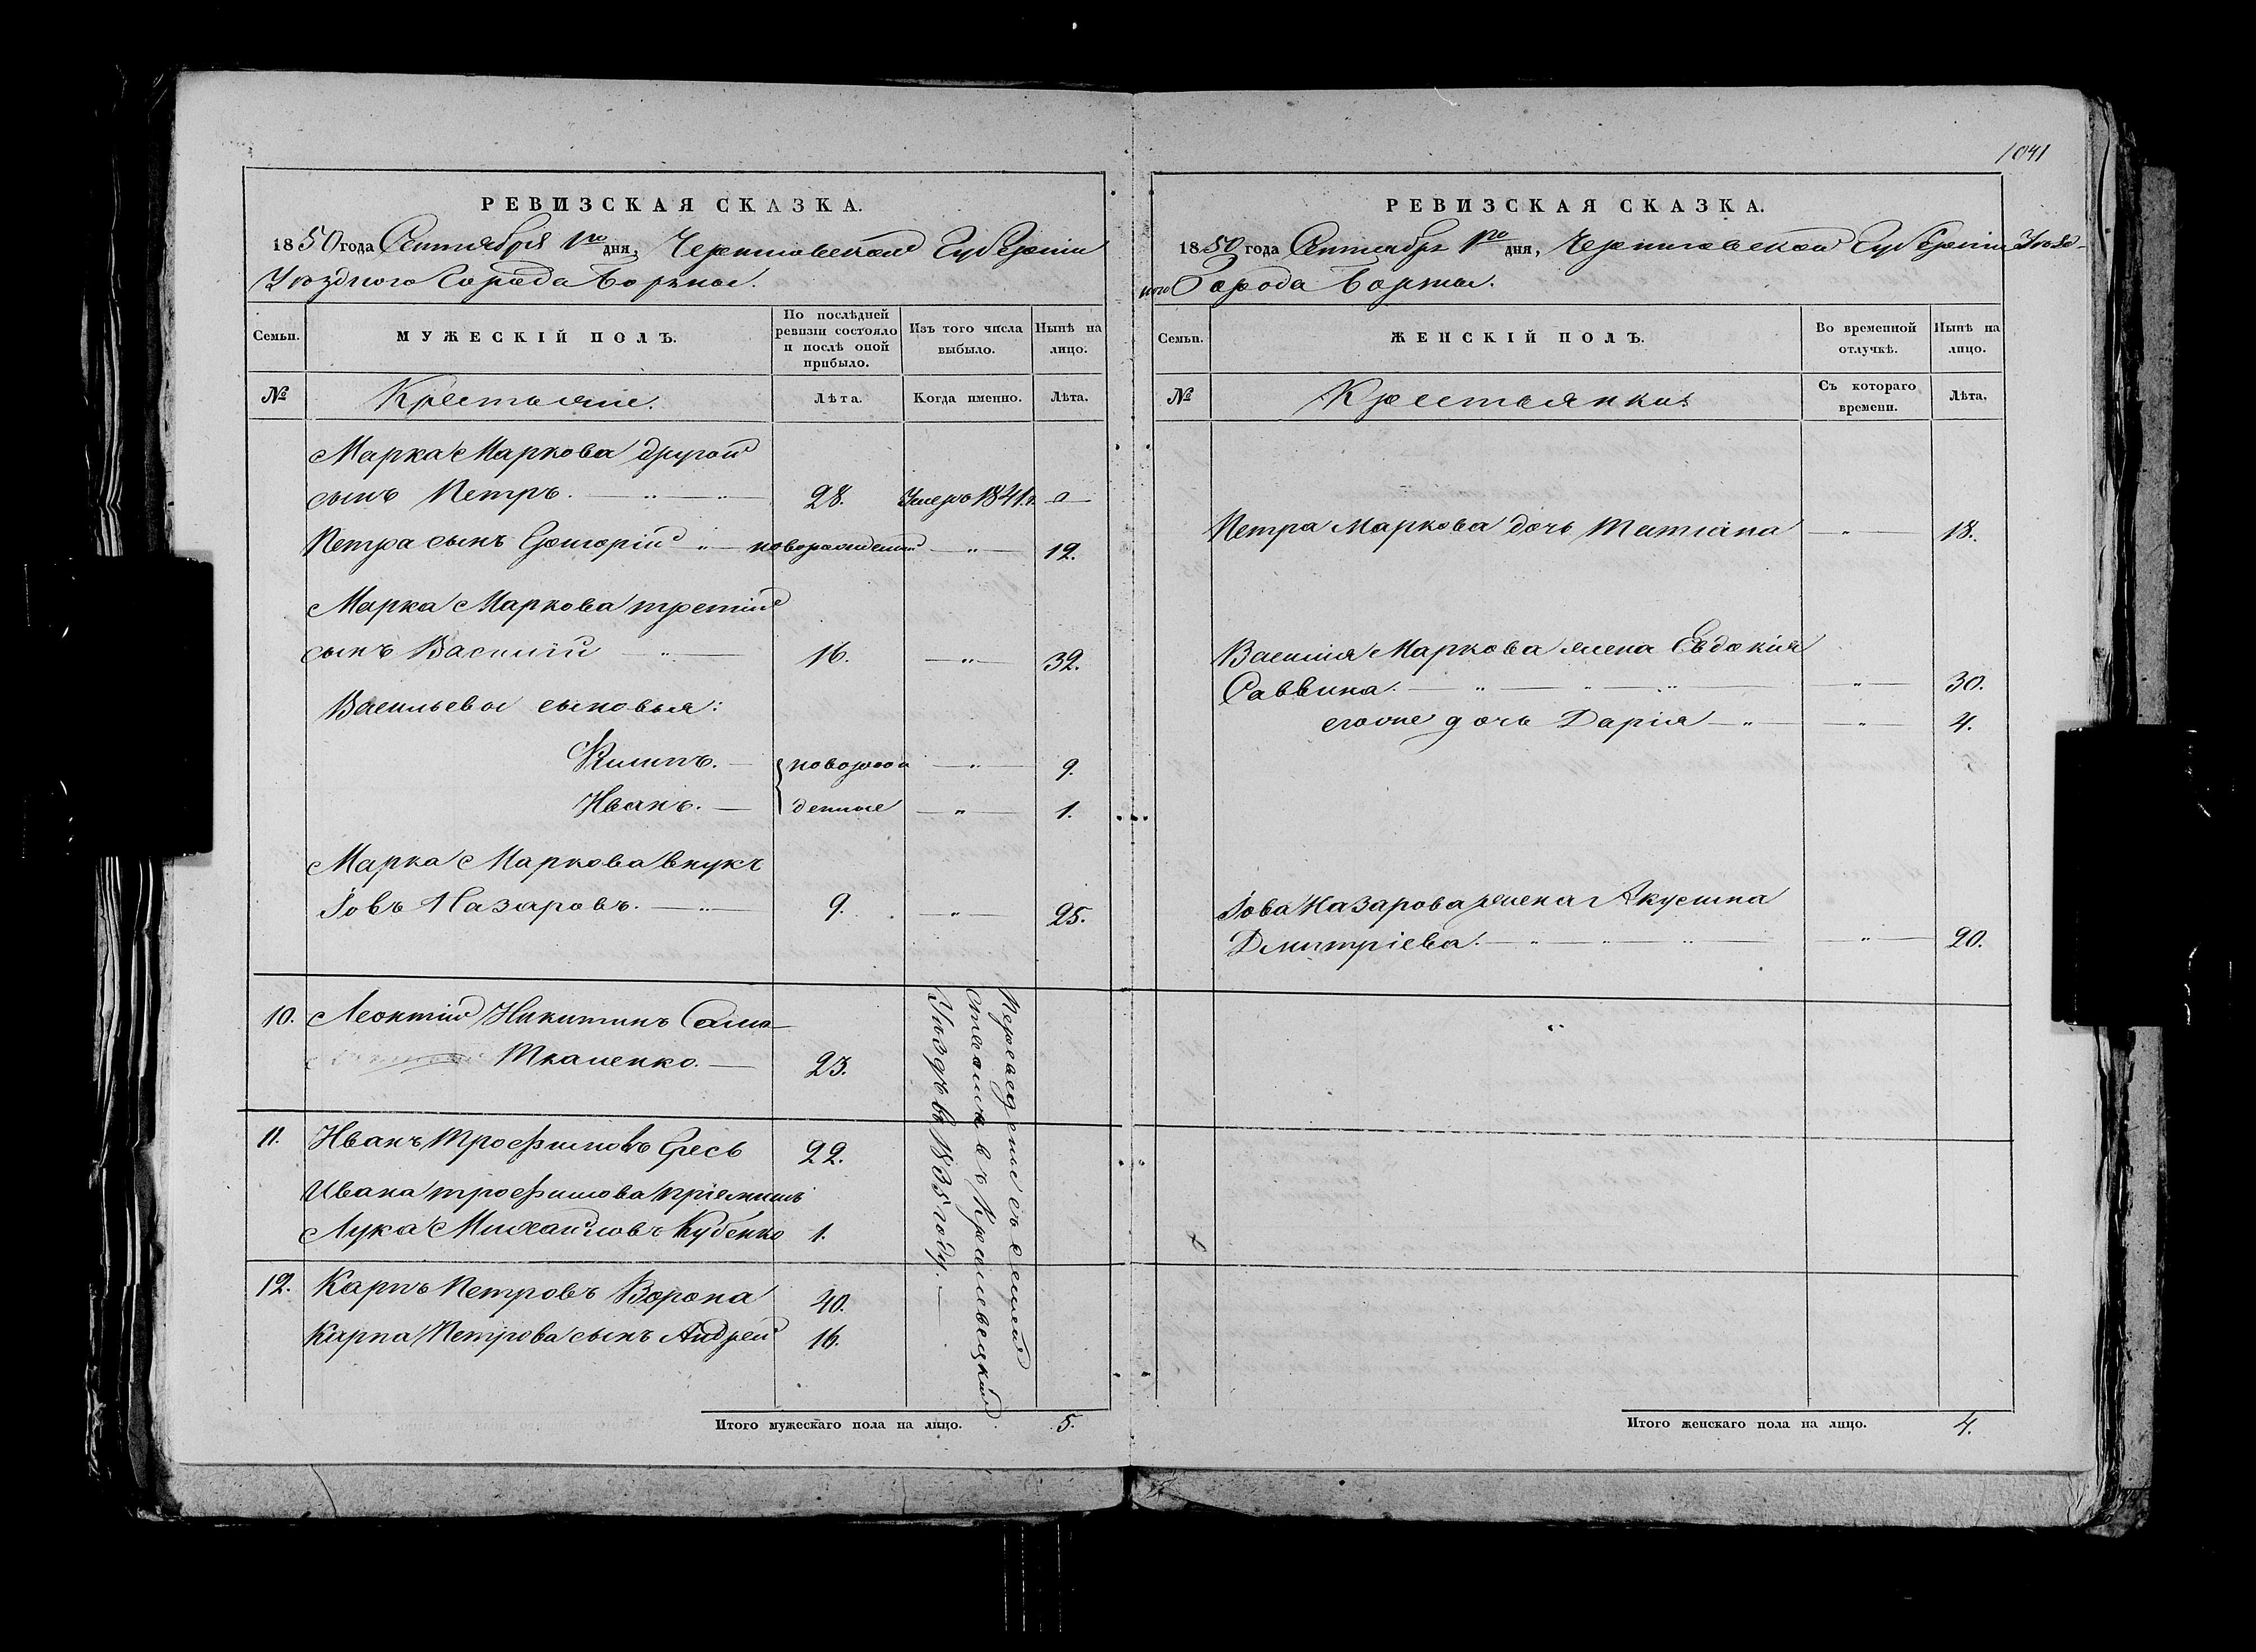 1041
РЕВИЗСКАЯ СКАЗКА.
1850 года Сентября 1го дня, Черниговской Губерніи
Уѣзднаго Города Борзны.
Семьи.
МУЖЕСКІЙ ПОЛЪ.
По послѣдней ревизіи состояло и послѣ оной прибыло.
Изъ того числа выбыло.
Нынѣ на лицо.
№
Крестьяне.
Лѣта.
Когда именно.
Лѣта.
Марка Маркова другой
сынъ Петръ. 28. Умеръ 1841 г.
Петра сынъ Григорій новорожденный 12.
Марка Маркова третій
сынъ Василій 16. 32.
Васильевы сыновья:
Филипъ. новорож 9.
Иванъ. денные 1.
Марка Маркова внукъ
Іовъ Назаровъ. 9. 25.
10. Леонтій Никитинъ Само
Ткаченко. 23.
11. Иванъ Трофимовъ Гресь 22.
Ивана Трофимова пріемышъ
Лука Михайловъ Кубенко 1.
12. Карпъ Петровъ Ворона 40.
Карпа Петрова сынъ Андрей 16.
Переведены съ семьей
въ Кролевецкій
Уѣздъ въ 1835 году.
Итого мужескаго пола на лицо. 5.
РЕВИЗСКАЯ СКАЗКА.
1850 года Сентября 1го дня, Черниговской Губерніи Уѣзд-
наго Города Борзны.
Семьи.
ЖЕНСКІЙ ПОЛЪ.
Во временной отлучкѣ.
Нынѣ на лицо.
№
Крестьянки
Съ котораго времени.
Лѣта.
Петра Маркова дочь Татіана 18.
Василія Маркова жена Евдокія
Саввина. 30.
егоже дочь Дарія 4.
Іова Назарова жена Акулина
Дмитріева. 20.
Итого женскаго пола на лицо. 4.